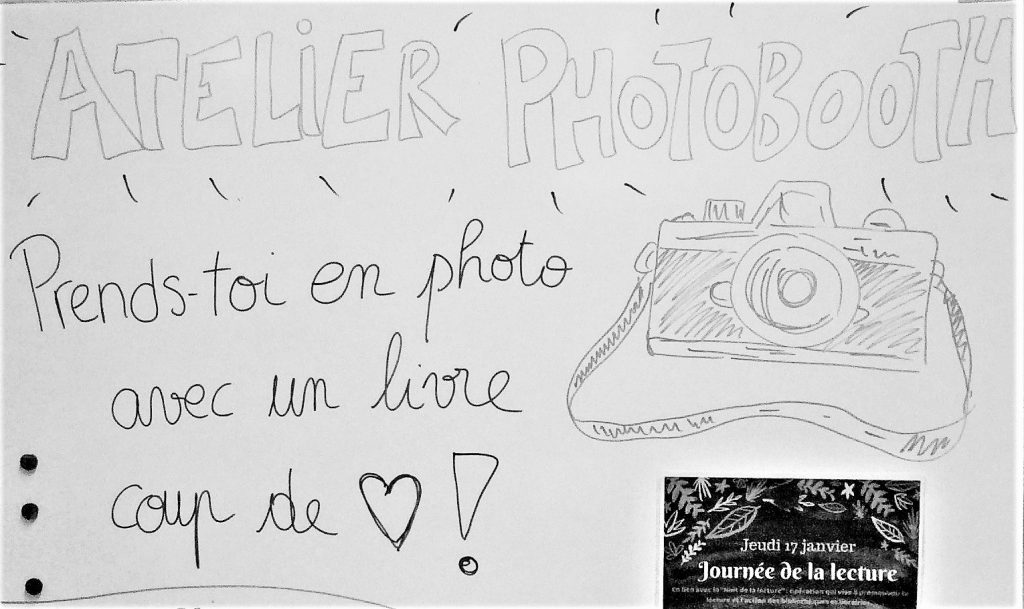 ATELIER PHOTOBOOTH
Prends-toi en photo
avec un livre
coup de ♡ !
Jeudi 17 janvier
Journée de la lecture
En lien avec la "Nuit de la lecture" : opération qui vise à promouvoir la
lecture et l'action des bibliothèques et librairies